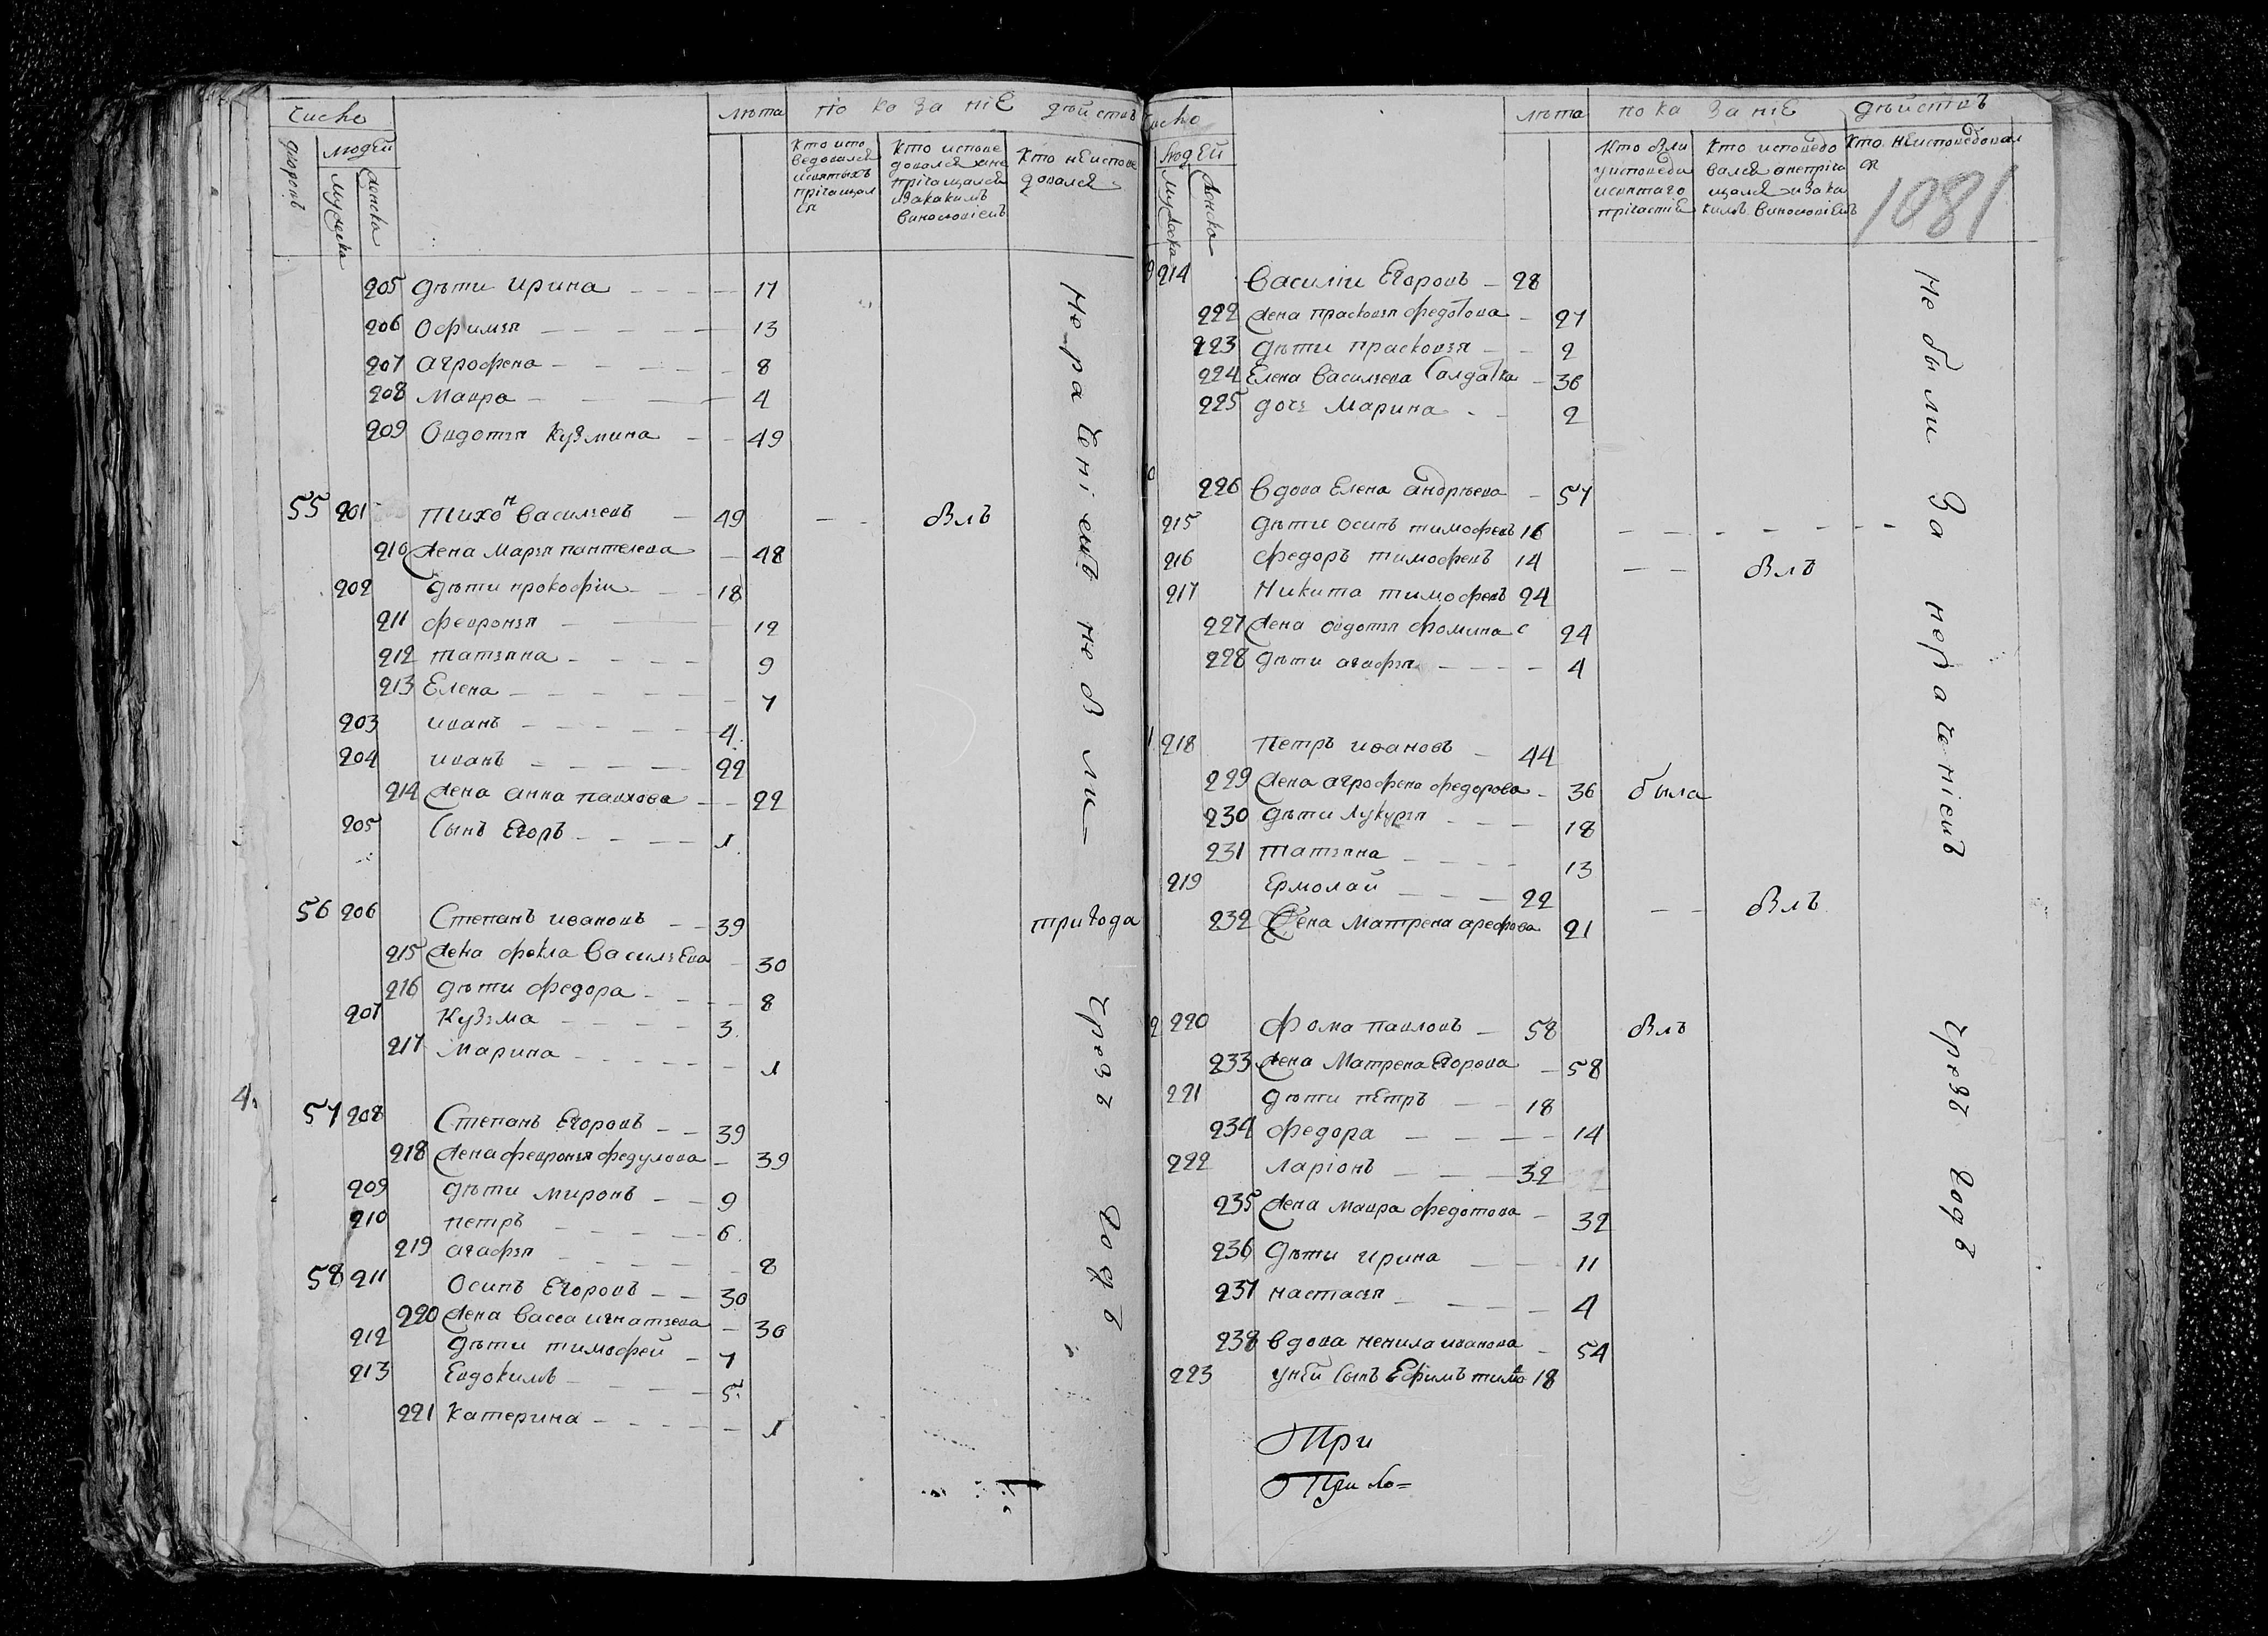 число лѣта показаніе дѣйствъ
дворовъ людей
мужеска женска
Кто испо
ведовался
исвятыхъ
прічащал
ся
Кто испове
довался ане
прічащался
изакакимъ
винословіемъ
Кто неиспове
довался
205 дѣти Ирина 17
206 Офимья 13
207 Агрофена 8
208 Мавра 4
209 Овдотья Кузмина 49
55 201 Тихон Васильевъ 49 былъ
210 жена Марья Пантелева 48
202 дѣти Прокофіи 18
211 Февронья 12
212 Татьяна 9
213 Елена 7
203 Иванъ 4
204 Иванъ 22
214 жена Анна Павлова 22
205 сынъ Егоръ 1
56 206 Степанъ Ивановъ 39 три года
215 жена Фекла Васильева 30
216 дѣти Федора 8
207 Кузьма 3
217 Марина 1
57 208 Степанъ Егоровъ 39
218 жена Февронья Федулова 39
209 дѣти Миронъ 9
210 Петръ 6
219 Агафья 8
58 211 Осипъ Егоровъ 30
220 жена Васса Игнатьева 30
212 дѣти Тимофеи 7
213 Евдокимъ 5
221 Катерина 1
Нераченіемъ не были
чрезъ годъ
4.
число лѣта показаніе дѣйствъ
людей
мужеска женска
Кто были
уисповеди
исвятаго
прічастіе
Кто исповедо
вался анепріча
щался изака
кимъ винословіемъ
Кто неисповедовал
ся
1081
214 Василіи Егоровъ 28
222 жена Прасковья Федотова 27
223 дѣти Прасковья 2
224 Елена Васильева Салдатка 36
225 дочь Марина 2
226 вдова Елена Андрѣева 57
215 дѣти Осипъ Тимофевъ 16
216 Федоръ Тимофевъ 14 былъ
217 Никита Тимофевъ 24
227 жена Овдотья Фомина 24
228 дѣти Агафья 4
218 Петръ Ивановъ 44
229 жена Агрофена Федорова 36 была
230 дѣти Лукурья 18
231 Татьяна 13
219 Ермолай 22 былъ
232 жена Матрена Арефова 21
220 Фома Павловъ 58 былъ
233 жена Матрена Егорова 58
221 дѣти Петръ 18
234 Федора 14
222 Ларіонъ 32
235 жена Мавра Федотова 32
236 дѣти Ирина 11
237 Настасья 4
238 вдова Ненила Иванова 54
223 уней сынъ Ефимъ Тимо 18
Не были за нераченіемъ
чрезъ годъ
При